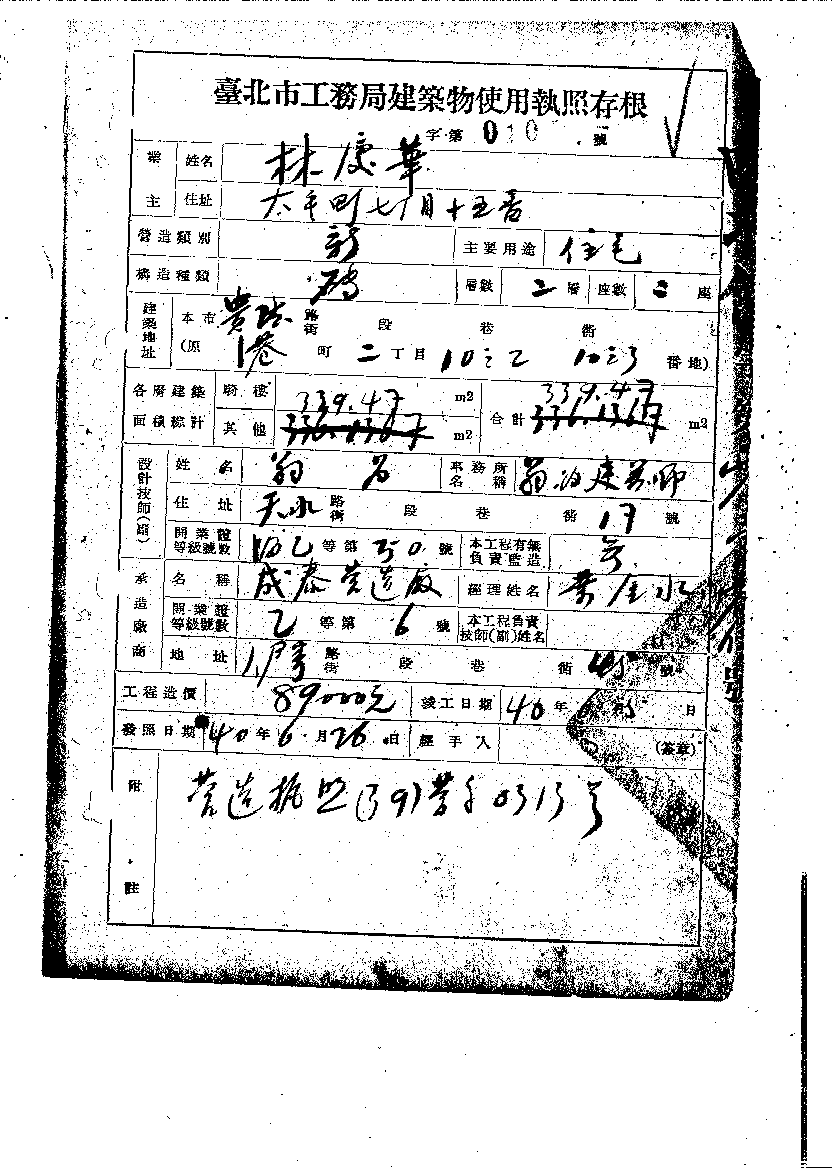 臺北市工務局建築物使用執照存根
字第 010 號
業主 姓名 林慶華
住址 太平町七丁目十五番
營造類別 新 主要用途 住宅
構造種類 磚 層數 二層 座數 二座
建築地址 本市 貴陽 路街 段 巷 衖
(原 港 町 二丁目 10之2 10之3 番地)
各層建築面積總計 騎樓 339.47 m2 合計 339.47 m2
其他 m2
設計技師(副) 姓名 翁 事務所名稱 翁 建築師
住址 天水 路街 段 巷 衖 17 號
開業證等級號數 乙 等第 50 號 本工程有無負責監造
承造廠商 名稱 成泰營造廠 經理姓名 葉金水
開業證等級號數 乙 等第 6 號 本工程負責技師(副)姓名
地址 路街 段 巷 衖 號
工程造價 89000元 竣工日期 40年 6 日
發照日期 40年6月26日 經手人 (簽章)
附註 營造執照(39)營字0313号